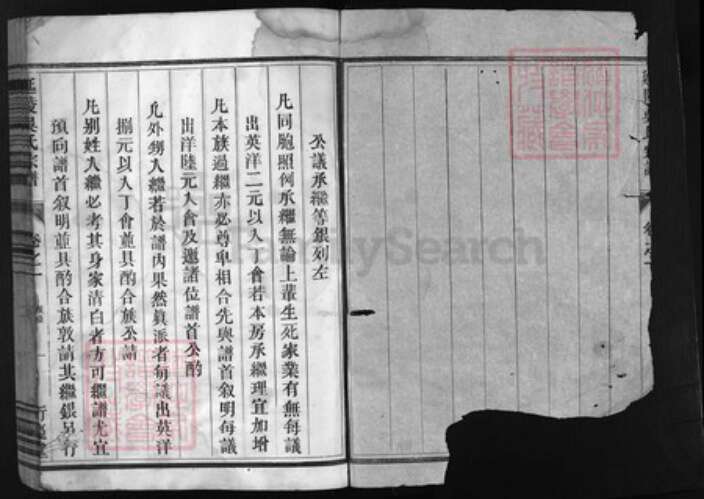 公議承繼等銀列左
凡同胞照例承繼無論上輩生死家業有無每議
出英洋二元以入丁會若本房承繼理宜加增
凡本族過繼亦必尊卑相合先與譜首叙明每議
出洋陸元入會及邀諸位譜首公酌
凡外甥入繼若於譜內果然眞派者每議出英洋
捌元以入丁會並具酌合族公請
凡別姓入繼必考其身家清白者方可繼譜尤宜
預向譜首叙明並具酌合族敦請其繼銀另行
延陵吳氏宗譜
卷之一
FamilySearch